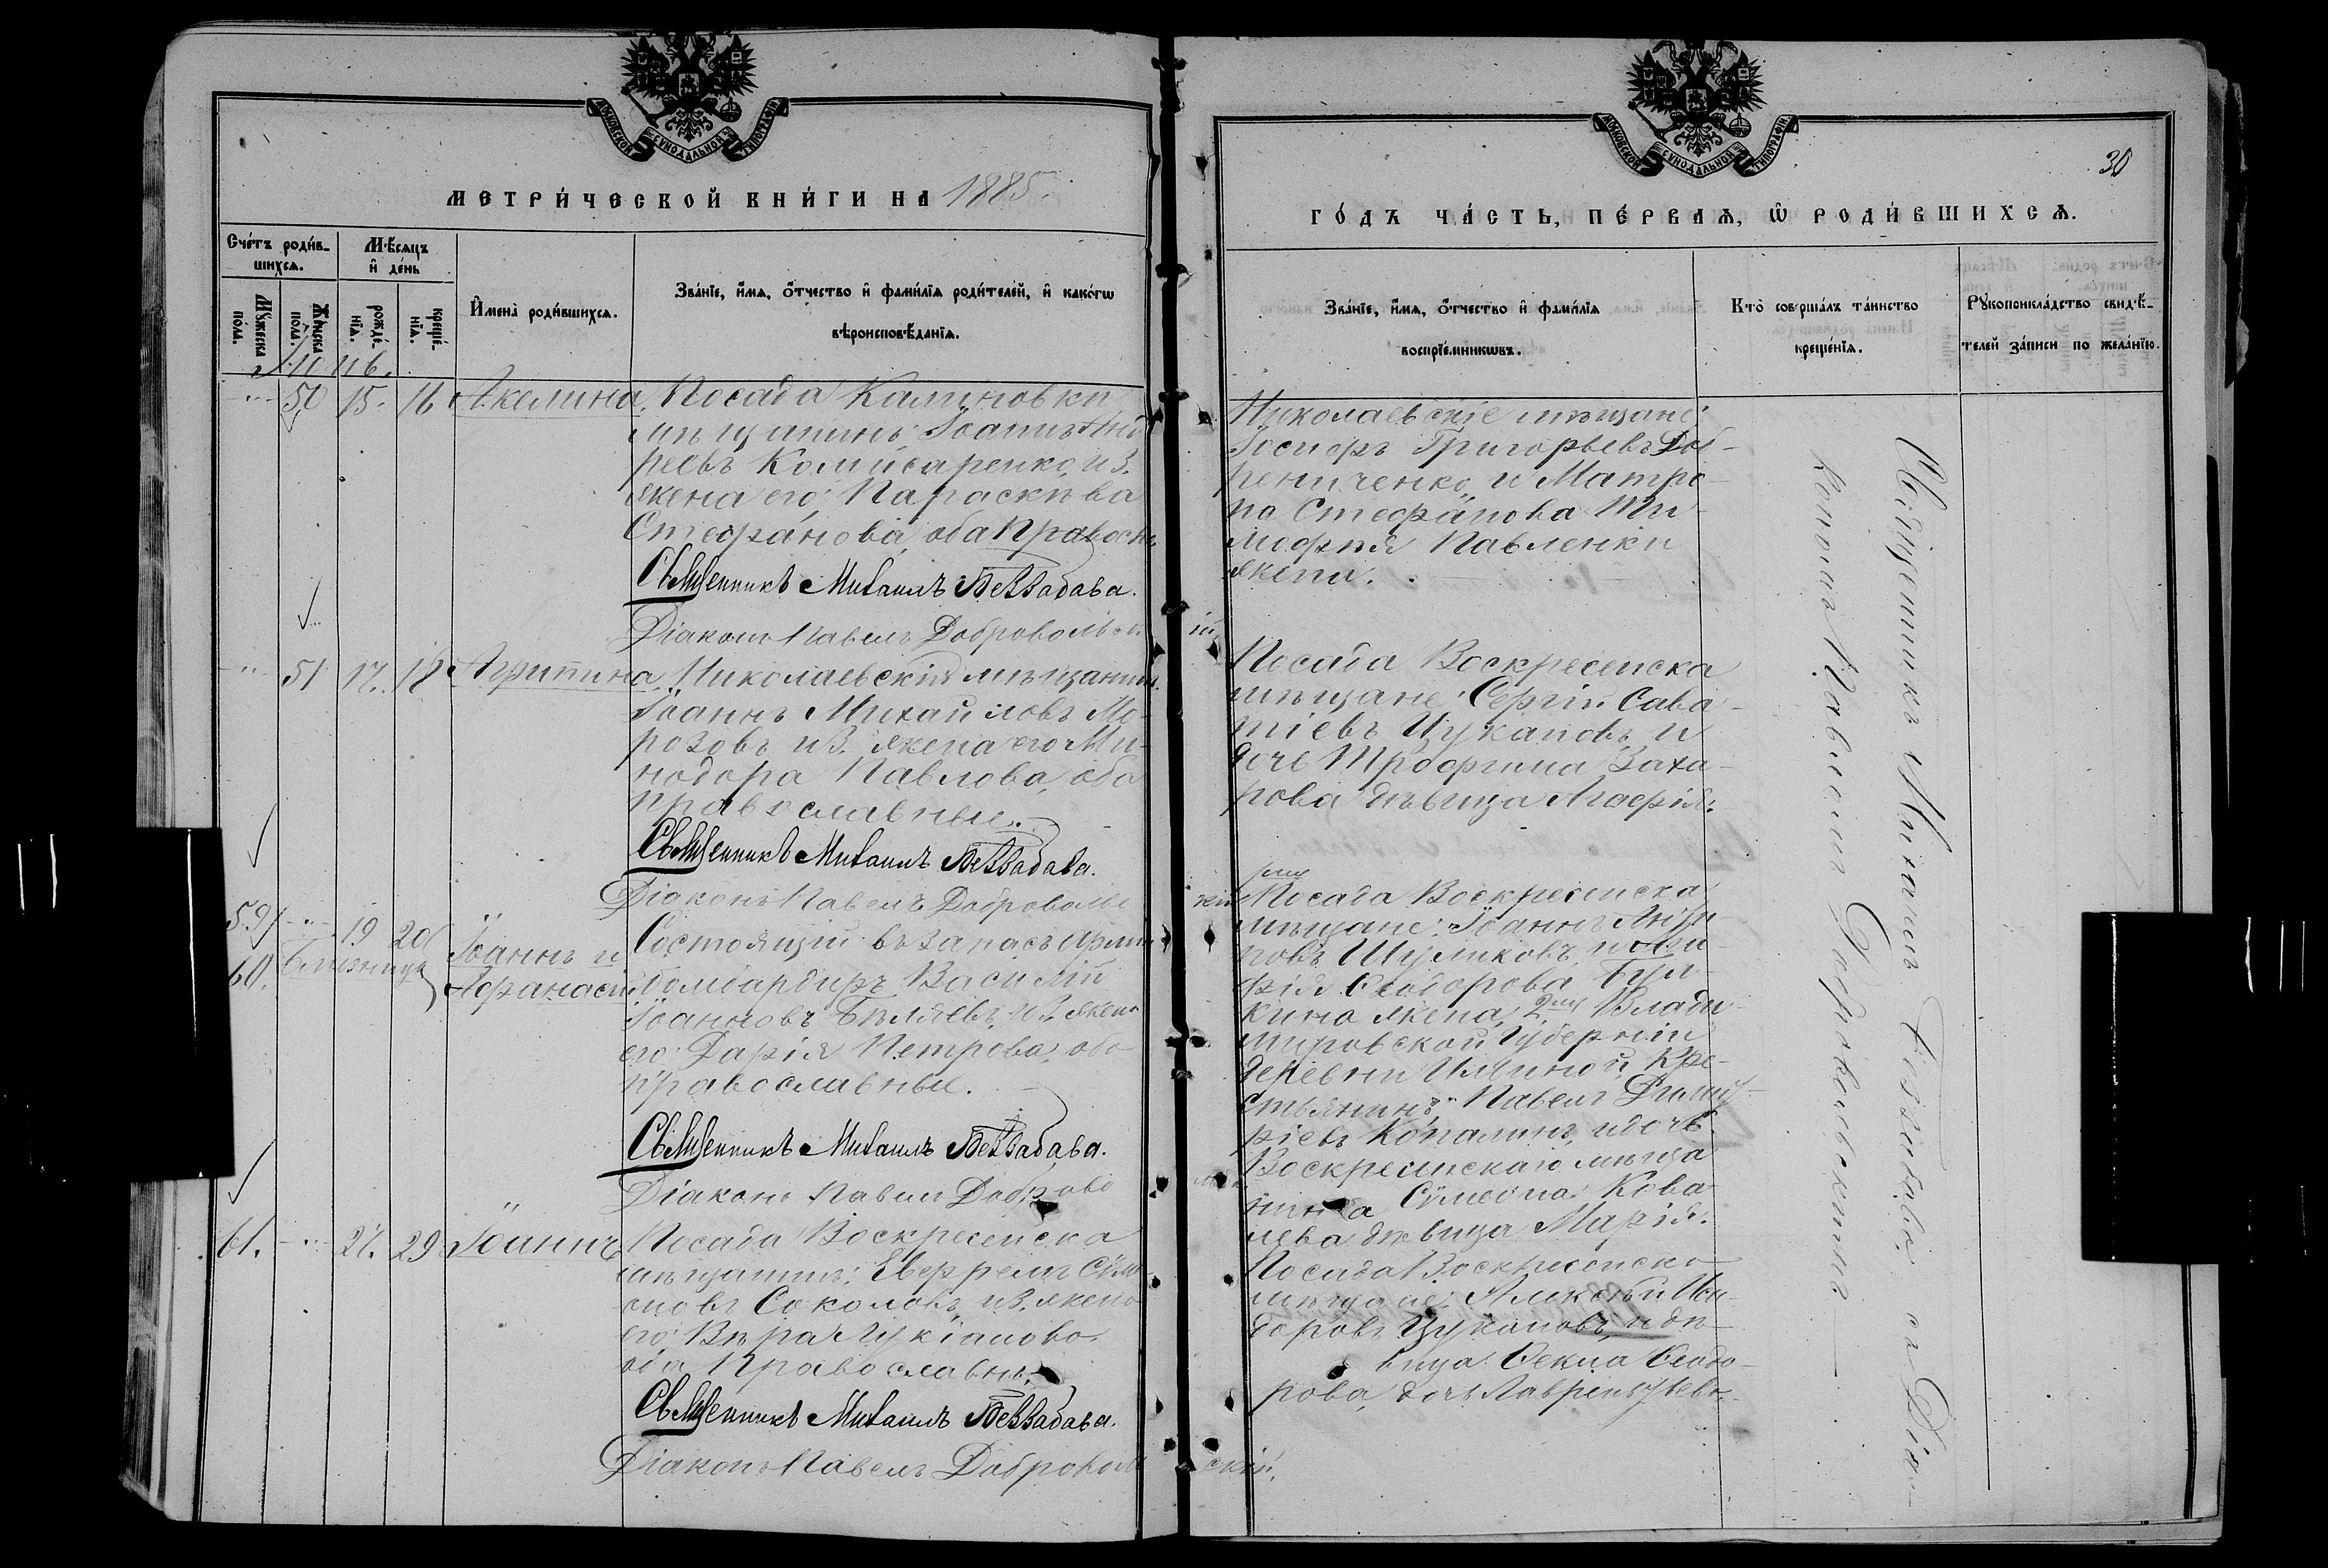 МОСКОВСКОЙ СѴНОДАЛЬНОЙ ТИПОГРАФІИ
МЕТРИ́ЧЕСКОЙ КНИ́ГИ НА 1885.
Сче́тъ роди́в-
шихсѧ.
Мѣ́сѧцъ
и҆ де́нь
Мꙋ́жеска
по́ла.
Же́нска
по́ла.
рожде́-
нїѧ.
креще́-
нїѧ.
И҆мена̀ роди́вшихсѧ.
Зва́нїе, и҆́мѧ, ѻ҆́тчество и҆ фами́лїѧ роди́телей, и҆ како́гѡ
вѣроисповѣ́данїѧ.
Іюнь.
50 15. 16 Акелина
Посада Калиновки
мѣщанинъ: Іоаннъ Анд
реевъ Комисаренко, и З.
жена его: Параскѣва
Стефанова, оба правосл
Священникъ Михаилъ Беззабава.
Діаконъ Павелъ Добровольскій
51 17. 18 Агрипина
Николаевскій мѣщанинъ
Іоаннъ Михайловъ Мо-
розовъ и З. жена его Ми-
нодора Павлова, оба
православные.
Священникъ Михаилъ Беззабава.
Діаконъ Павелъ Добровольскій
59 19 20
60. Близнецы
Іоаннъ и
Афанасій
Состоящій въ запасѣ арміи
бомбардиръ Василій
Іоанновъ Бѣляевъ, и З. жена
его: Дарія Петрова, оба
православные.
Священникъ Михаилъ Беззабава.
Діаконъ Павелъ Доброво
61. 27. 29 Іоаннъ
Посада Воскресенска
мѣщанинъ: Евфремъ Сѵме
оновъ Соколовъ, и З. жена
его: Вѣра Лукіанова
оба Православны.
Священникъ Михаилъ Беззабава.
Діаконъ Павелъ Добровольскій.
МОСКОВСКОЙ СѴНОДАЛЬНОЙ ТИПОГРАФІИ
30
ГО́ДЪ ЧА́СТЬ, ПЕ́РВАѦ, Ѡ҆ РОДИ́ВШИХСѦ.
Зва́нїе, и҆́мѧ, ѻ҆́тчество и҆ фами́лїѧ
воспрїе́мникѡвъ.
Кто̀ соверша́лъ та́инство
креще́нїѧ.
Рꙋкоприкла́дство свидѣ́-
телей за́писи по жела́нїю.
Николаевскіе мѣщане:
Іосифъ Григорьевъ Доб-
рениченко, и Матро-
на Стефанова Ти-
мофѣя Павленки
жена.
Посада Воскресенска
мѣщане: Сергій Сава-
тіевъ Цукановъ, и
дочь Трофима Заха-
рова дѣвица Агафія.
Посада Воскресенска
мѣщане: Іоаннъ
новъ Шуликовъ, и
фія Ѳеодорова Бул-
кина жена, 2 Влади-
мировской губерніи
деревни Ильиной, Кре-
стьянинъ: Павелъ Димит-
ріевъ Копалинъ, и дочь
Воскресенскаго мѣща
нина Сѵмеона Кова
лева дѣвица Марія.
Посада Воскресенска
мѣщане: Алексѣй Иси-
доровъ Цукановъ, и дѣ-
вица Ѳекла Ѳеодо-
рова, дочь
Священникъ Михаилъ Беззабава, съ Діа-
кономъ Павломъ Добровольскимъ.